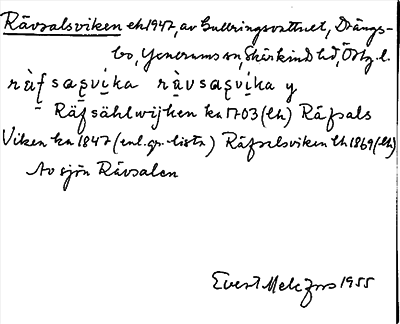 Rävsalsviken ek 1947, av Gullringsvattnet, Drängs-
bo, Yxnerums sn, Skärkind hd, Östg. l.
ràfsaʂvíka ràvsaʂvíka y
Räfsählwijken ka 1703 (LK) Räfsals
Viken ka 1847 (enl. gr. lista) Räfsalsviken LK 1869 (LK)
Av sjön Rävsalen
Evert Melefors 1955